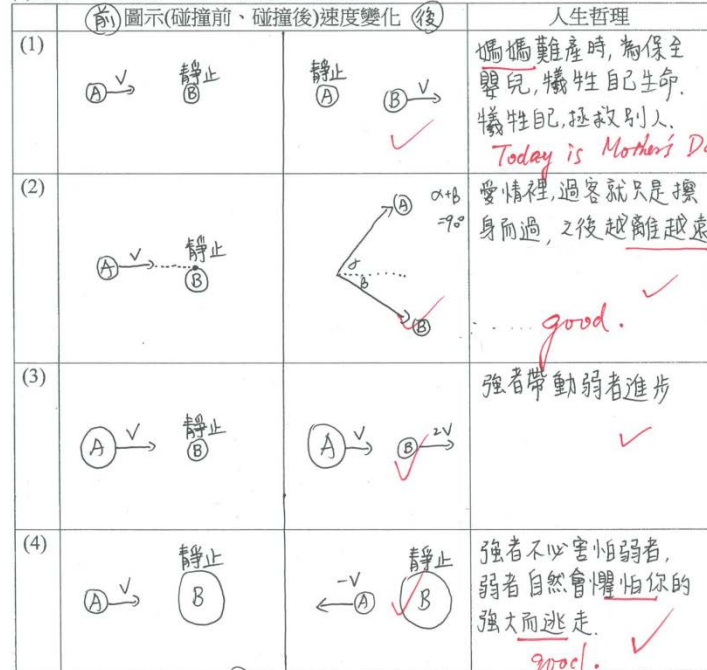 前 圖示(碰撞前、碰撞後)速度變化 後 人生哲理
(1)
V
A
靜止
B
靜止
A
B
V
媽媽難產時,為保全
嬰兒,犧牲自己生命.
犧牲自己,拯救別人.
Today is Mother's Da
(2)
A
V
靜止
B
A
α+β
=90°
α
β
B
愛情裡,過客就只是擦
身而過,之後越離越遠
good.
(3)
A
V
靜止
B
A
V
B
2V
強者帶動弱者進步
(4)
A
V
靜止
B
-V
A
靜止
B
強者不必害怕弱者,
弱者自然會懼怕你的
強大而逃走.
good.